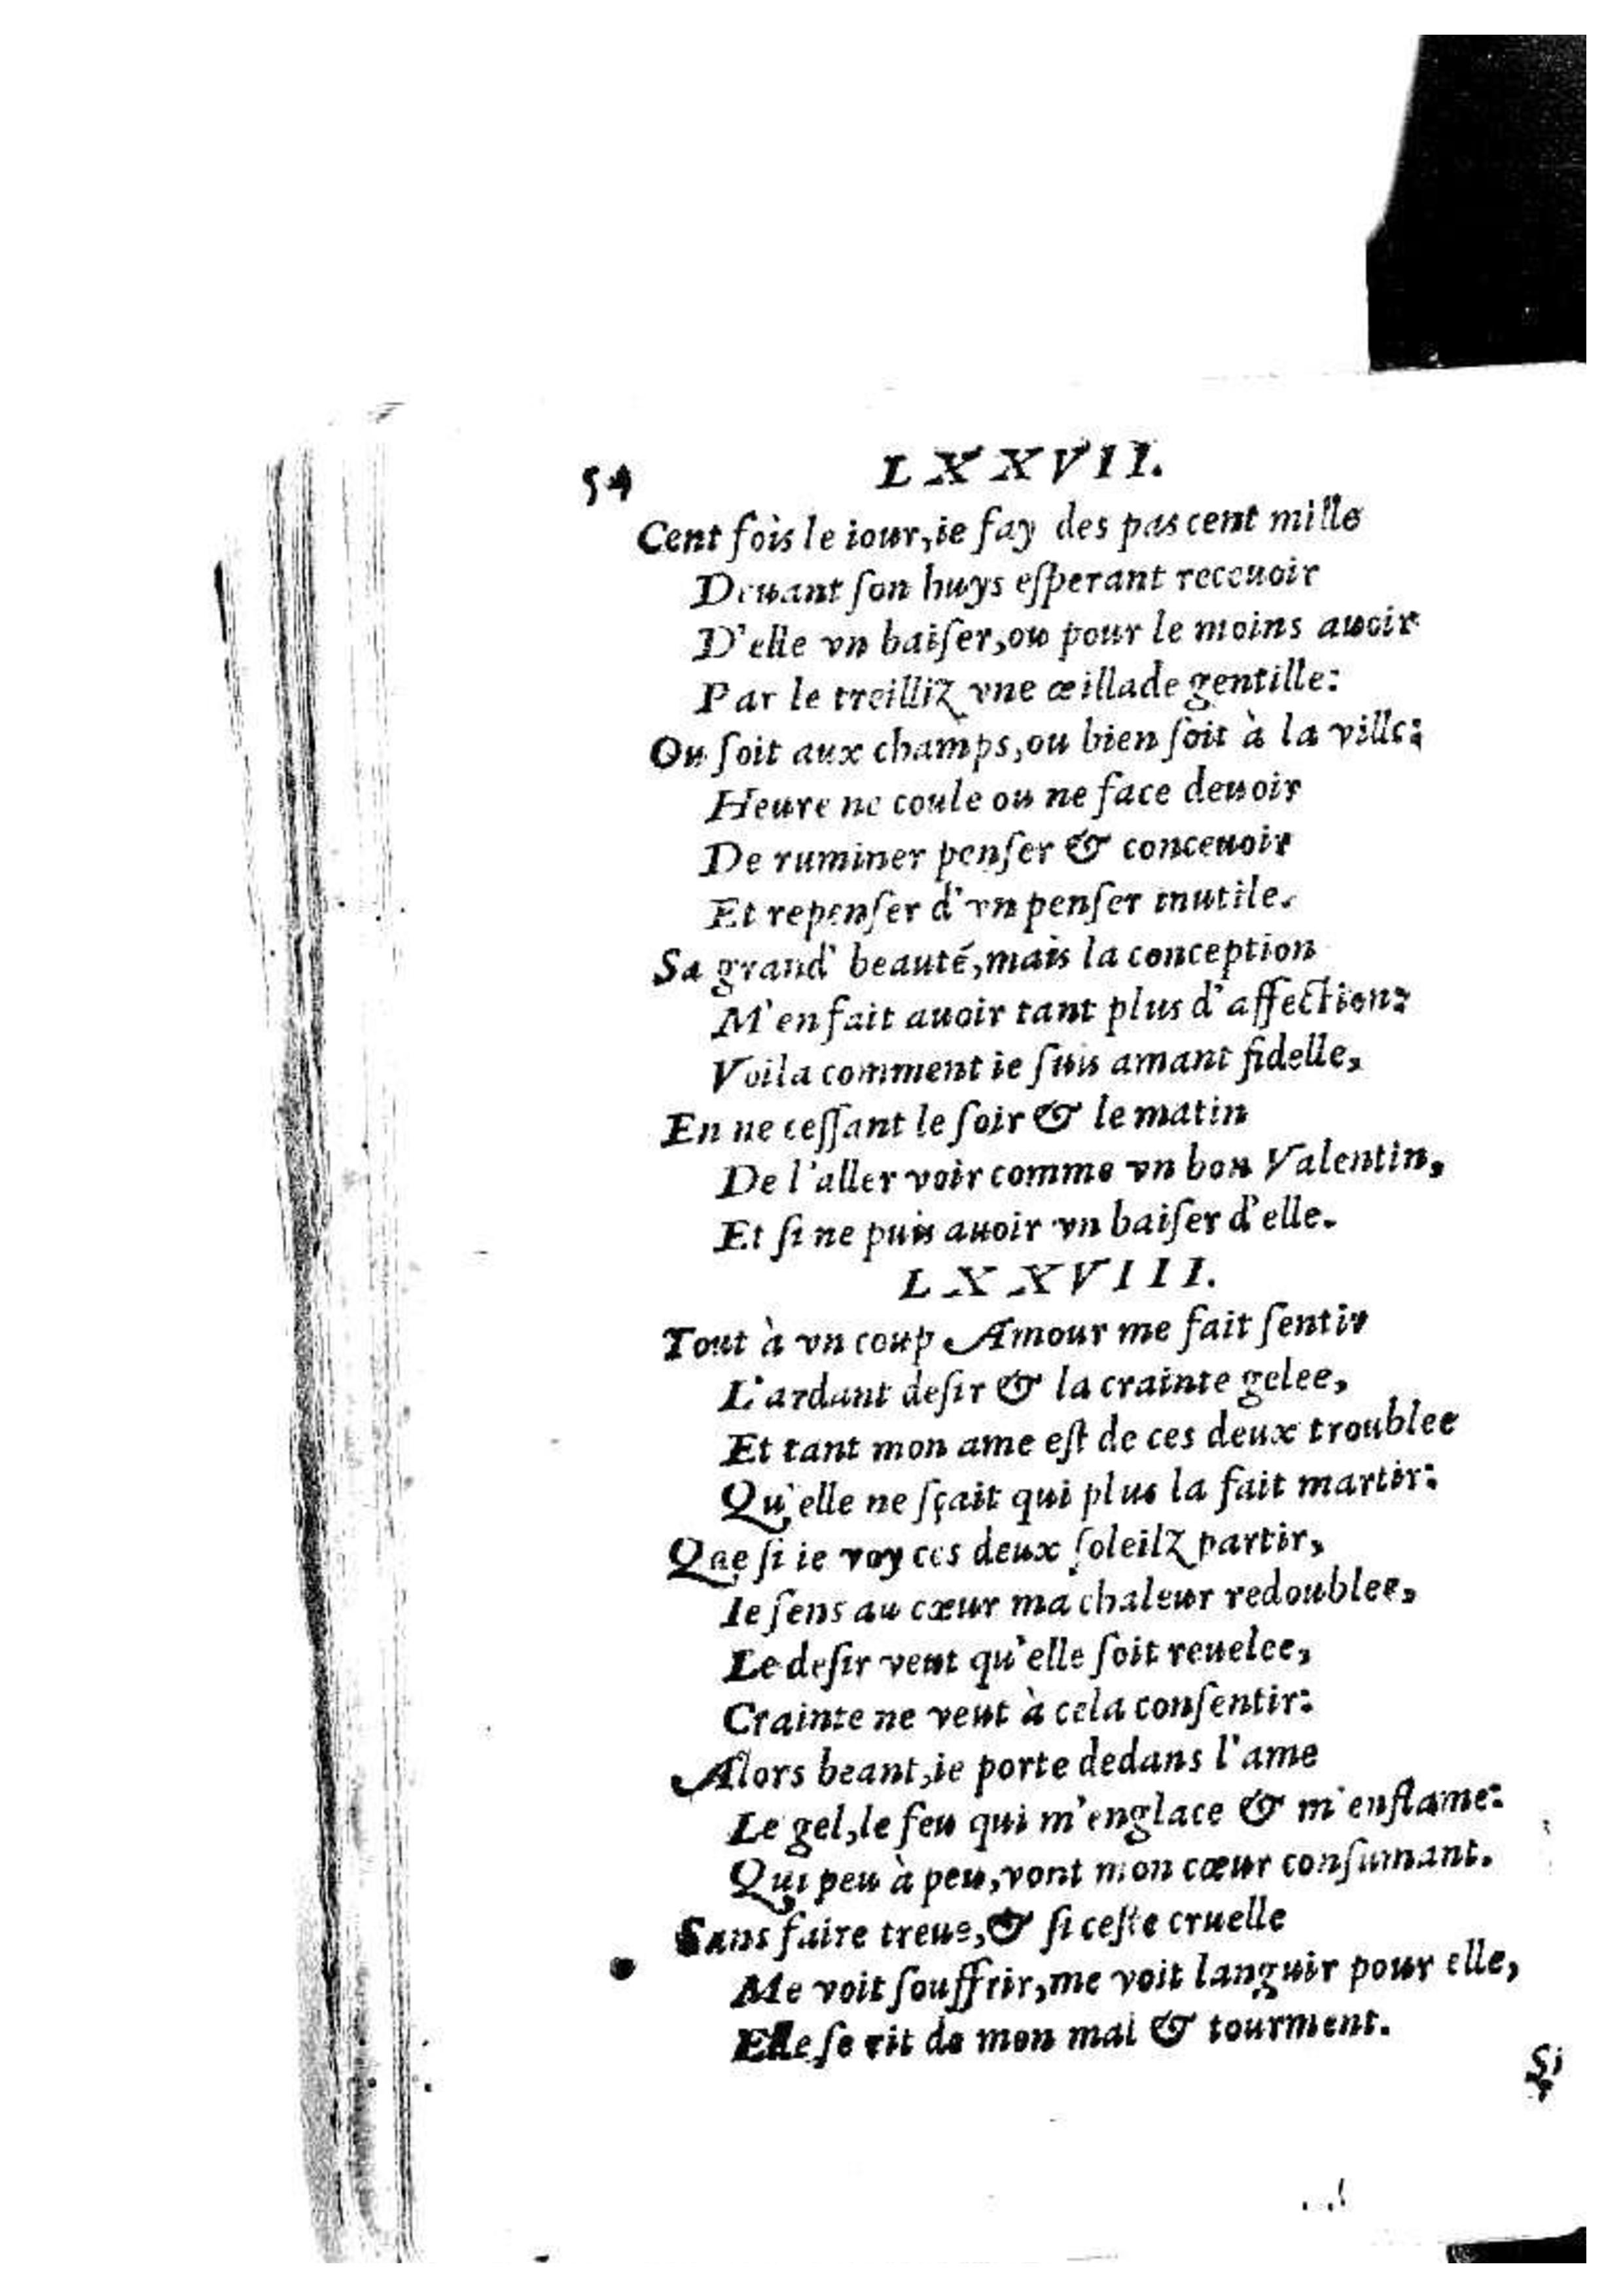 54
LXXVII.
Cent fois le iour, ie fay des pas cent mille
Deuant ſon huys eſperant receuoir
D'elle vn baiſer, ou pour le moins auoir
Par le treilliz vne œillade gentille:
Ou ſoit aux champs, ou bien ſoit à la ville:
Heure ne coule ou ne face deuoir
De ruminer penſer & conceuoir
Et repenſer d'vn penſer inutile.
Sa grand' beauté, mais la conception
M'en fait auoir tant plus d'affection:
Voila comment ie ſuis amant fidelle,
En ne ceſſant le ſoir & le matin
De l'aller voir comme vn bon Valentin,
Et ſi ne puis auoir vn baiſer d'elle.
LXXVIII.
Tout à vn coup Amour me fait ſentir
L'ardant deſir & la crainte gelee,
Et tant mon ame eſt de ces deux troublee
Qu'elle ne ſçait qui plus la fait martir:
Que ſi ie voy ces deux ſoleilz partir,
Ie ſens au cœur ma chaleur redoublee,
Le deſir veut qu'elle ſoit reuelee,
Crainte ne veut à cela conſentir:
Alors beant, ie porte dedans l'ame
Le gel, le feu qui m'englace & m'enflame:
Qui peu à peu, vont mon cœur conſumant.
Sans faire treue, & ſi ceſte cruelle
Me voit ſouffrir, me voit languir pour elle,
Elle ſe rit de mon mal & tourment.
Si